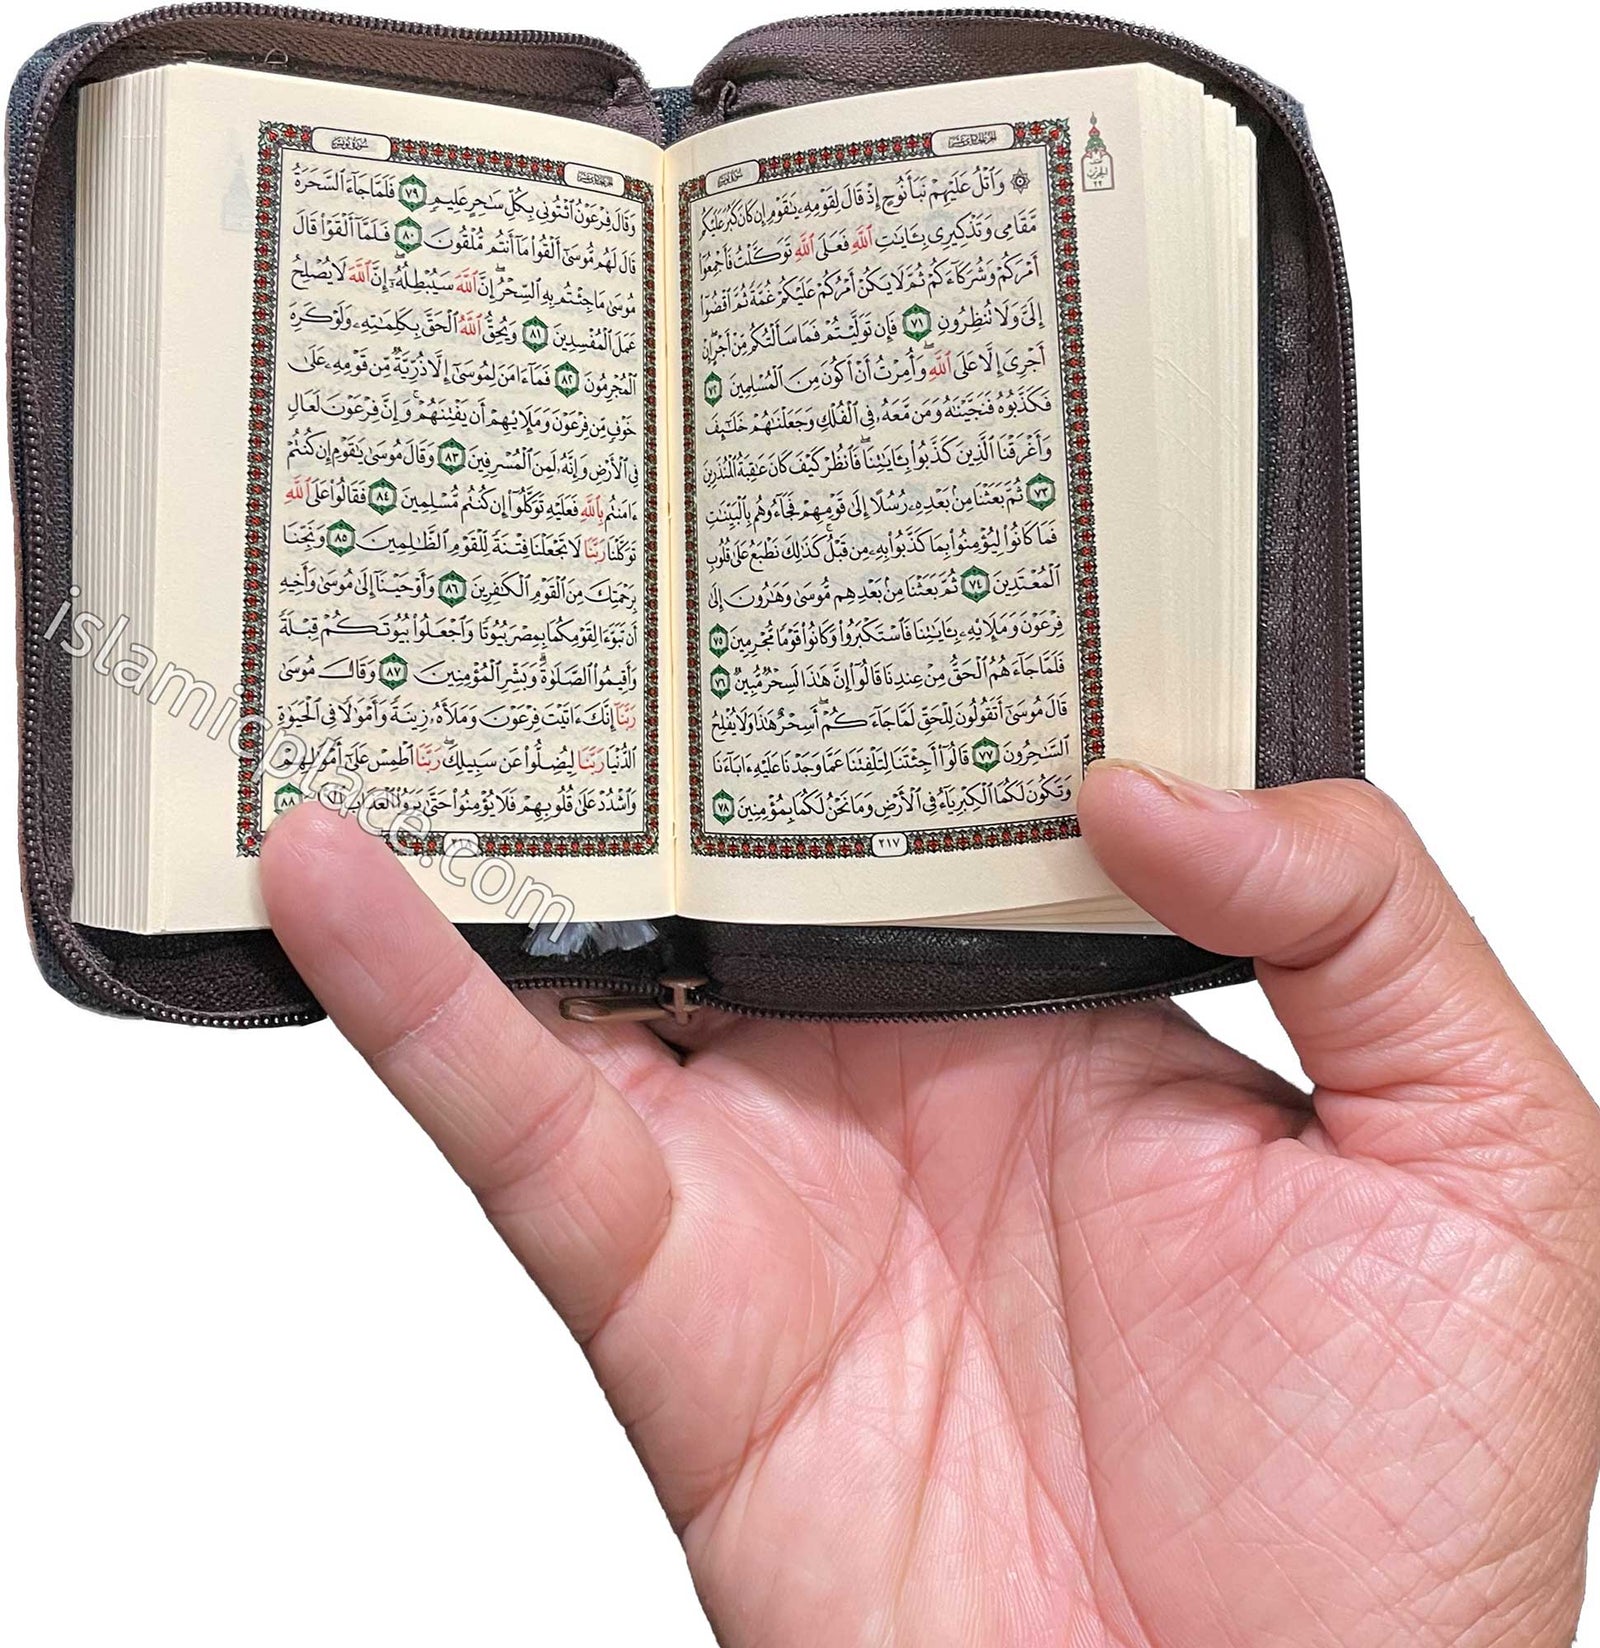 ۞ وَٱتۡلُ عَلَيۡهِمۡ نَبَأَ نُوحٍ إِذۡ قَالَ لِقَوۡمِهِۦ يَٰقَوۡمِ إِن كَانَ كَبُرَ عَلَيۡكُم
مَّقَامِي وَتَذۡكِيرِي بِـَٔايَٰتِ ٱللَّهِ فَعَلَى ٱللَّهِ تَوَكَّلۡتُ فَأَجۡمِعُوٓاْ
أَمۡرَكُمۡ وَشُرَكَآءَكُمۡ ثُمَّ لَا يَكُنۡ أَمۡرُكُمۡ عَلَيۡكُمۡ غُمَّةٗ ثُمَّ ٱقۡضُوٓاْ
إِلَيَّ وَلَا تُنظِرُونِ ٧١ فَإِن تَوَلَّيۡتُمۡ فَمَا سَأَلۡتُكُم مِّنۡ أَجۡرٍۖ إِنۡ
أَجۡرِيَ إِلَّا عَلَى ٱللَّهِۖ وَأُمِرۡتُ أَنۡ أَكُونَ مِنَ ٱلۡمُسۡلِمِينَ ٧٢
فَكَذَّبُوهُ فَنَجَّيۡنَٰهُ وَمَن مَّعَهُۥ فِي ٱلۡفُلۡكِ وَجَعَلۡنَٰهُمۡ خَلَٰٓئِفَ
وَأَغۡرَقۡنَا ٱلَّذِينَ كَذَّبُواْ بِـَٔايَٰتِنَاۖ فَٱنظُرۡ كَيۡفَ كَانَ عَٰقِبَةُ ٱلۡمُنذَرِينَ
٧٣ ثُمَّ بَعَثۡنَا مِنۢ بَعۡدِهِۦ رُسُلًا إِلَىٰ قَوۡمِهِمۡ فَجَآءُوهُم بِٱلۡبَيِّنَٰتِ
فَمَا كَانُواْ لِيُؤۡمِنُواْ بِمَا كَذَّبُواْ بِهِۦ مِن قَبۡلُۚ كَذَٰلِكَ نَطۡبَعُ عَلَىٰ قُلُوبِ
ٱلۡمُعۡتَدِينَ ٧٤ ثُمَّ بَعَثۡنَا مِنۢ بَعۡدِهِم مُّوسَىٰ وَهَٰرُونَ إِلَىٰ
فِرۡعَوۡنَ وَمَلَإِيْهِۦ بِـَٔايَٰتِنَا فَٱسۡتَكۡبَرُواْ وَكَانُواْ قَوۡمٗا مُّجۡرِمِينَ ٧٥
فَلَمَّا جَآءَهُمُ ٱلۡحَقُّ مِنۡ عِندِنَا قَالُوٓاْ إِنَّ هَٰذَا لَسِحۡرٞ مُّبِينٞ ٧٦
قَالَ مُوسَىٰٓ أَتَقُولُونَ لِلۡحَقِّ لَمَّا جَآءَكُمۡۖ أَسِحۡرٌ هَٰذَا وَلَا يُفۡلِحُ
ٱلسَّٰحِرُونَ ٧٧ قَالُوٓاْ أَجِئۡتَنَا لِتَلۡفِتَنَا عَمَّا وَجَدۡنَا عَلَيۡهِ ءَابَآءَنَا
وَتَكُونَ لَكُمَا ٱلۡكِبۡرِيَآءُ فِي ٱلۡأَرۡضِ وَمَا نَحۡنُ لَكُمَا بِمُؤۡمِنِينَ ٧٨
٢١٧
سورة يونس
وَقَالَ فِرۡعَوۡنُ ٱئۡتُونِي بِكُلِّ سَٰحِرٍ عَلِيمٖ ٧٩ فَلَمَّا جَآءَ ٱلسَّحَرَةُ
قَالَ لَهُم مُّوسَىٰٓ أَلۡقُواْ مَآ أَنتُم مُّلۡقُونَ ٨٠ فَلَمَّآ أَلۡقَوۡاْ قَالَ
مُوسَىٰ مَا جِئۡتُم بِهِ ٱلسِّحۡرُۖ إِنَّ ٱللَّهَ سَيُبۡطِلُهُۥٓ إِنَّ ٱللَّهَ لَا يُصۡلِحُ
عَمَلَ ٱلۡمُفۡسِدِينَ ٨١ وَيُحِقُّ ٱللَّهُ ٱلۡحَقَّ بِكَلِمَٰتِهِۦ وَلَوۡ كَرِهَ
ٱلۡمُجۡرِمُونَ ٨٢ فَمَآ ءَامَنَ لِمُوسَىٰٓ إِلَّا ذُرِّيَّةٞ مِّن قَوۡمِهِۦ عَلَىٰ
خَوۡفٖ مِّن فِرۡعَوۡنَ وَمَلَإِيْهِمۡ أَن يَفۡتِنَهُمۡۚ وَإِنَّ فِرۡعَوۡنَ لَعَالٖ
فِي ٱلۡأَرۡضِ وَإِنَّهُۥ لَمِنَ ٱلۡمُسۡرِفِينَ ٨٣ وَقَالَ مُوسَىٰ يَٰقَوۡمِ إِن كُنتُمۡ
ءَامَنتُم بِٱللَّهِ فَعَلَيۡهِ تَوَكَّلُوٓاْ إِن كُنتُم مُّسۡلِمِينَ ٨٤ فَقَالُواْ عَلَى ٱللَّهِ
تَوَكَّلۡنَا رَبَّنَا لَا تَجۡعَلۡنَا فِتۡنَةٗ لِّلۡقَوۡمِ ٱلظَّٰلِمِينَ ٨٥ وَنَجِّنَا
بِرَحۡمَتِكَ مِنَ ٱلۡقَوۡمِ ٱلۡكَٰفِرِينَ ٨٦ وَأَوۡحَيۡنَآ إِلَىٰ مُوسَىٰ وَأَخِيهِ
أَن تَبَوَّءَا لِقَوۡمِكُمَا بِمِصۡرَ بُيُوتٗا وَٱجۡعَلُواْ بُيُوتَكُمۡ قِبۡلَةٗ
وَأَقِيمُواْ ٱلصَّلَوٰةَۗ وَبَشِّرِ ٱلۡمُؤۡمِنِينَ ٨٧ وَقَالَ مُوسَىٰ
رَبَّنَآ إِنَّكَ ءَاتَيۡتَ فِرۡعَوۡنَ وَمَلَأَهُۥ زِينَةٗ وَأَمۡوَٰلٗا فِي ٱلۡحَيَوٰةِ
ٱلدُّنۡيَا رَبَّنَا لِيُضِلُّواْ عَن سَبِيلِكَۖ رَبَّنَا ٱطۡمِسۡ عَلَىٰٓ أَمۡوَٰلِهِمۡ
وَٱشۡدُدۡ عَلَىٰ قُلُوبِهِمۡ فَلَا يُؤۡمِنُواْ حَتَّىٰ يَرَوُاْ ٱلۡعَذَابَ ٨٨
islamicplace.com